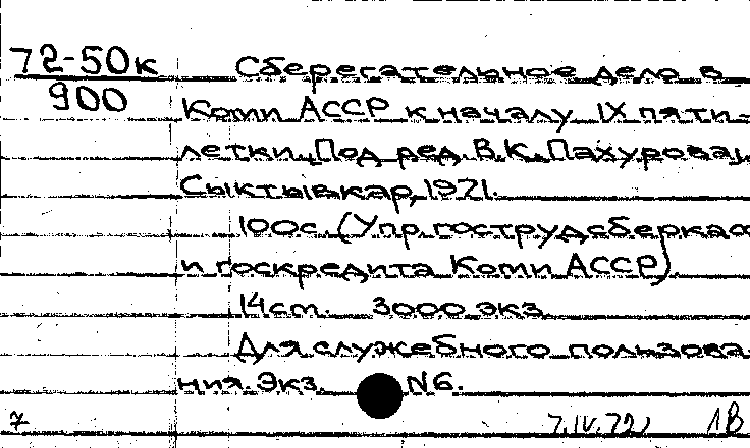 72-50к
900
Сберегательное дело в
Коми АССР к началу IX пяти-
летки. Под ред. В.К. Пахурова,
Сыктывкар, 1971.
100с. (Упр. гострудсберкасс
и госкредита Коми АССР).
14 cm. 3000 экз
Для служебного пользова-
ния. Экз. N6.
7 7.IV.72 1В